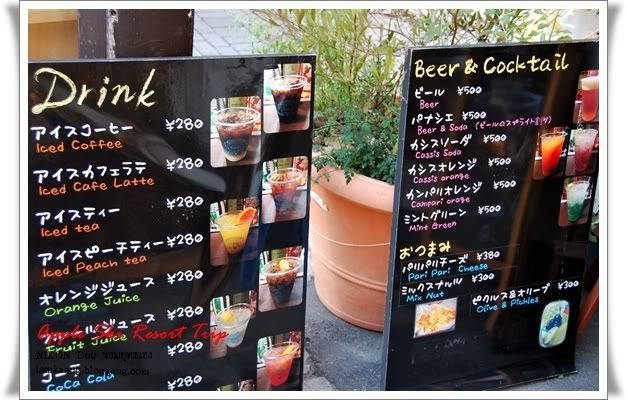 Drink
アイスコーヒー ¥280
Iced Coffee
アイスカフェラテ ¥280
Iced Cafe Latte
アイスティー ¥280
Iced tea
アイスピーチティー ¥280
Iced Peach tea
オレンジジュース ¥280
Orange Juice
ルジュース ¥280
Fruit Juice
コーラ ¥280
CoCa Cola
Beer & Cocktail
ビール ¥500
Beer
パナシェ ¥500
Beer & Soda (ビールのスプライト割り)
カシスソーダ ¥500
Cassis Soda
カシスオレンジ ¥500
Cassis orange
カンパリオレンジ ¥500
Campari orage
ミントグリーン ¥500
Mint Green
おつまみ
パリパリチーズ ¥380
Pari Pari Cheese
ミックスナッツ ¥300
Mix Nut
ピクルス&オリーブ ¥300
Olive & Pickles
Resort Trip
NIKON D60